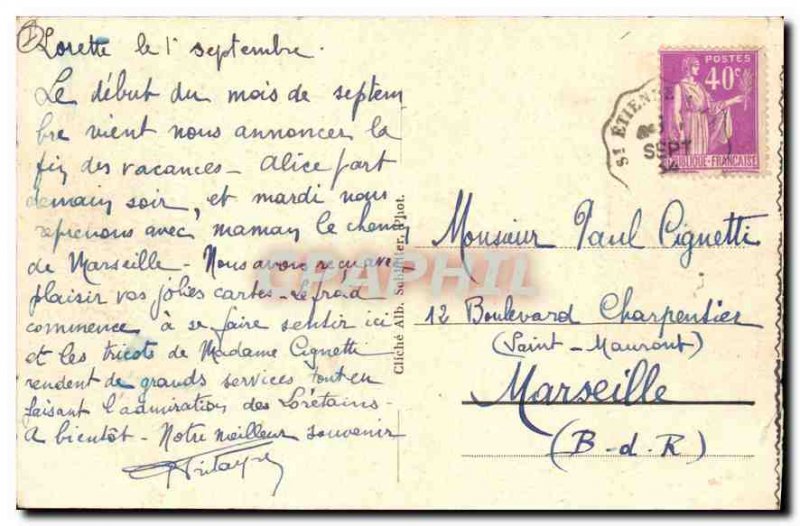 Lorette le 1er septembre.
Le début du mois de septem
bre vient nous annoncer la
fin des vacances - Alice part
demain soir, et mardi nous
reprenons avec maman le chemin
de Marseille - Nous avons reçu avec
plaisir vos jolies cartes - Le froid
commence à se faire sentir ici
et les tricots de Madame Cignetti
rendent de grands services tout en
faisant l'admiration des Lorétains -
A bientôt - Notre meilleur souvenir
Cliché Alb. Schlitter, Phot.
CPAPHIL
POSTES
40c
RÉPUBLIQUE-FRANÇAISE
St ETIENNE
SEPT
34
Monsieur Paul Cignetti
12 Boulevard Charpentier
(Saint-Mauront)
Marseille
(B-d-R)